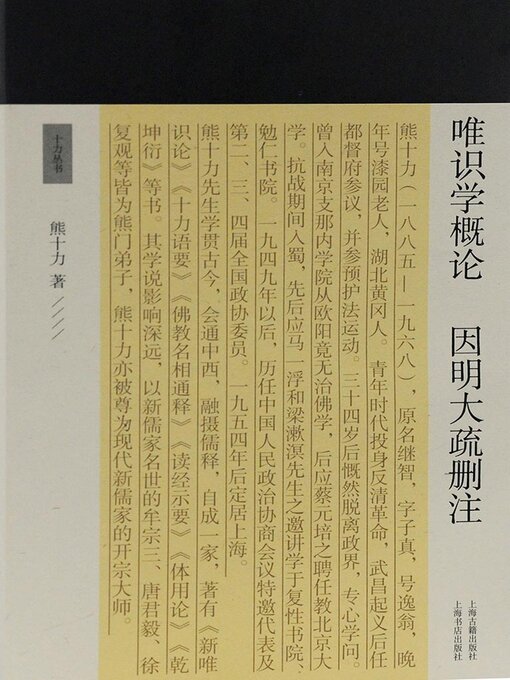 唯识学概论 因明大疏删注
上海古籍出版社
上海书店出版社
熊十力（一八八五—一九六八），原名继智，字子真，号逸翁，晚
年号漆园老人，湖北黄冈人。青年时代投身反清革命，武昌起义后任
都督府参议，并参预护法运动。三十四岁后慨然脱离政界，专心学问。
曾入南京支那内学院从欧阳竟无治佛学，后应蔡元培之聘任教北京大
学。抗战期间入蜀，先后应马一浮和梁漱溟先生之邀讲学于复性书院、
勉仁书院。一九四九年以后，历任中国人民政治协商会议特邀代表及
第二、三、四届全国政协委员。一九五四年后定居上海。
熊十力先生学贯古今，会通中西，融摄儒释，自成一家，著有《新唯
识论》《十力语要》《佛教名相通释》《读经示要》《体用论》《乾
坤衍》等书。其学说影响深远，以新儒家名世的牟宗三、唐君毅、徐
复观等皆为熊门弟子，熊十力亦被尊为现代新儒家的开宗大师。
十力丛书
熊十力 著